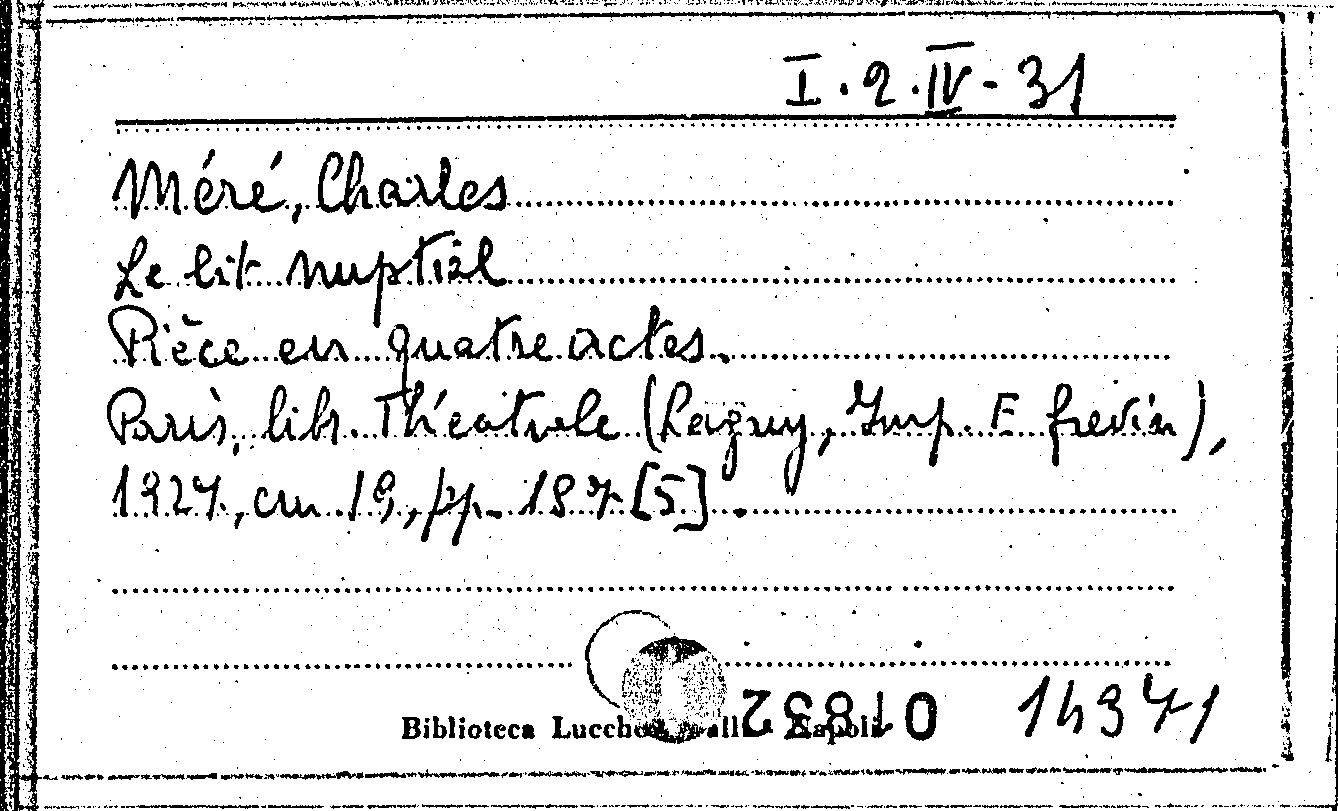 I.2.IV-31
Méré, Charles
Le lit nuptial
Pièce en quatre actes.
Paris, libr. Théatrale (Lagny, Imp. E. Grevin),
1927, cm. 19, pp. 187 [5].
Biblioteca Lucchesi Palli - Napoli
14371